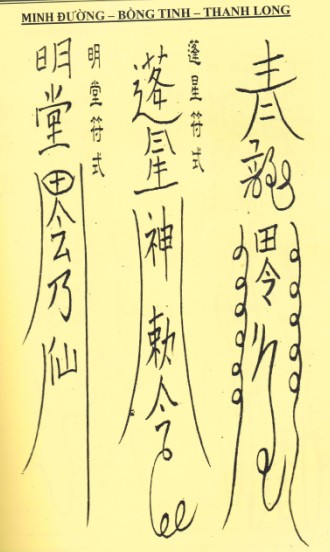 MINH ĐƯỜNG – BỒNG TINH – THANH LONG
龍田令
蓬星符式
星神勅令
明堂符式
明堂田令乃仙